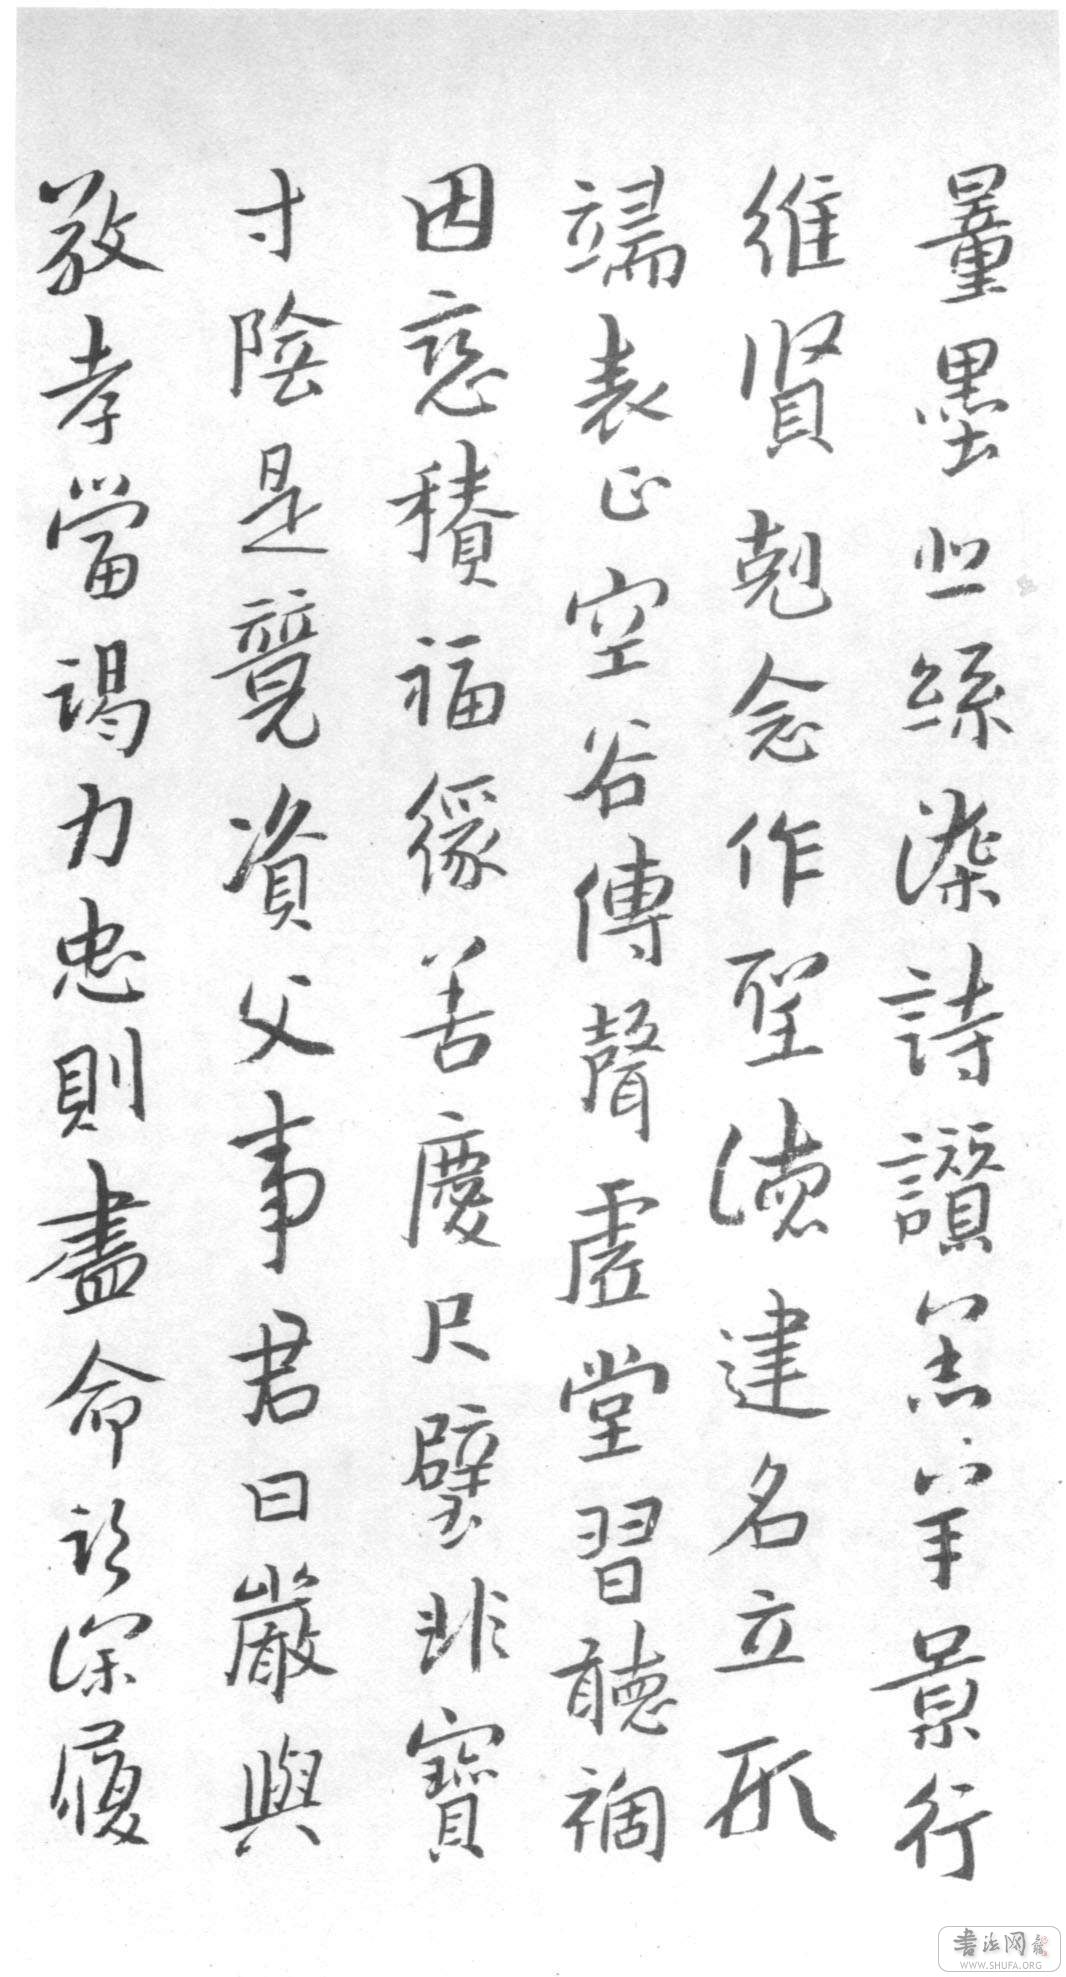 量墨悲絲染詩讚羔羊景行
維賢剋念作聖德建名立形
端表正空谷傳聲虛堂習聽禍
因惡積福緣善慶尺璧非寶
寸陰是競資父事君曰嚴與
敬孝當竭力忠則盡命臨深履
書法网
WWW.SHUFA.ORG